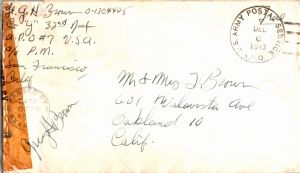 G. H. Brown O-1304445
Co "G" 32nd Inf
A.P.O #7 U.S.A
c/o P.M.
San Francisco,
Calif
U.S. ARMY POSTAL SERVICE
DEC
6
1943
A.P.O.
Mr & Mrs J. Brown
601 Walavista Ave
Oakland 10
Calif.